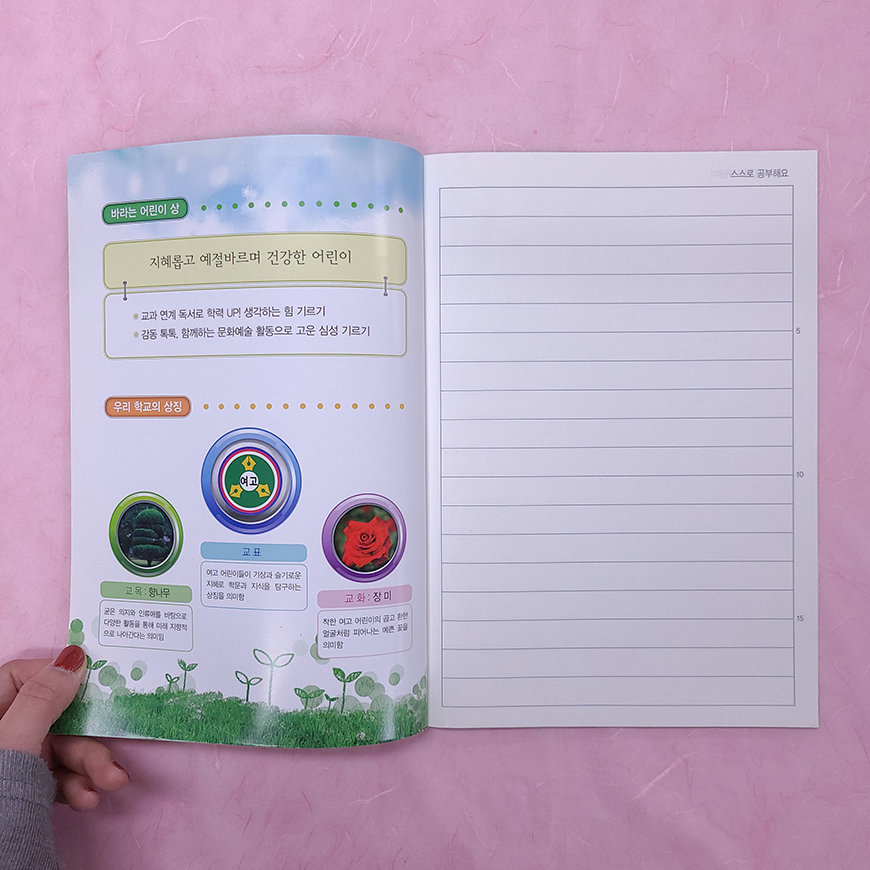 바라는 어린이 상
지혜롭고 예절바르며 건강한 어린이
※ 교과 연계 독서로 학력 UP! 생각하는 힘 기르기
※ 감동 톡톡, 함께하는 문화예술 활동으로 고운 심성 기르기
우리 학교의 상징
여고
교 표
여고 어린이들이 기상과 슬기로운
지혜로 학문과 지식을 탐구하는
상징을 의미함
교 목 : 향나무
굳은 의지와 인류애를 바탕으로
다양한 활동을 통해 미래 지향적
으로 나아간다는 의미임
교 화 : 장 미
착한 여고 어린이의 곱고 환한
얼굴처럼 피어나는 예쁜 꽃을
의미함
스스로 공부해요
5
10
15